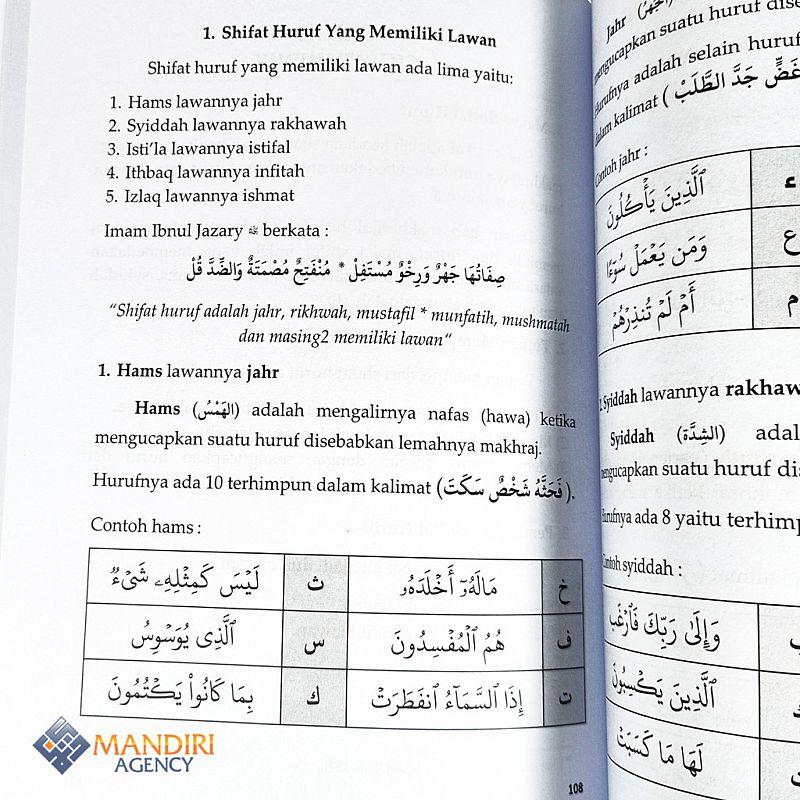 1. Shifat Huruf Yang Memiliki Lawan
Shifat huruf yang memiliki lawan ada lima yaitu:
1. Hams lawannya jahr
2. Syiddah lawannya rakhawah
3. Isti'la lawannya istifal
4. Ithbaq lawannya infitah
5. Izlaq lawannya ishmat
Imam Ibnul Jazary berkata :
صِفَاتُهَا جَهْرٌ وَرِخْوٌ مُسْتَفِلْ * مُنْفَتِحٌ مُصْمَتَةٌ وَالضِّدَّ قُلْ
“Shifat huruf adalah jahr, rikhwah, mustafil * munfatih, mushmatah
dan masing2 memiliki lawan“
1. Hams lawannya jahr
Hams (الهَمْسُ) adalah mengalirnya nafas (hawa) ketika
mengucapkan suatu huruf disebabkan lemahnya makhraj.
Hurufnya ada 10 terhimpun dalam kalimat (فَحَثَّهُ شَخْصٌ سَكَتَ).
Contoh hams :
خ مَالَهُۥٓ أَخْلَدَهُۥ ث لَيْسَ كَمِثْلِهِۦ شَىْءٌ
ف هُمُ ٱلْمُفْسِدُونَ س ٱلَّذِى يُوَسْوِسُ
ت إِذَا ٱلسَّمَآءُ ٱنفَطَرَتْ ك بِمَا كَانُوا۟ يَكْتُمُونَ
108
Jahr (الجَهْرُ)
mengucapkan suatu huruf
Hurufnya adalah selain huruf
dalam kalimat ( غَضٍّ جَدَّ الطَّلَبْ
Contoh jahr :
ء ٱلَّذِينَ يَأْكُلُونَ
ع وَمَن يَعْمَلْ سُوٓءًا
م أَمْ لَمْ تُنذِرْهُمْ
2. Syiddah lawannya
Syiddah (الشِدَّة)
mengucapkan suatu huruf
Hurufnya ada 8 yaitu
Contoh syiddah :
وَإِلَىٰ رَبِّكَ فَٱرْغَب
ٱلَّذِينَ يَكْسِبُونَ
لَهَا مَا كَسَبَتْ
MANDIRI
AGENCY